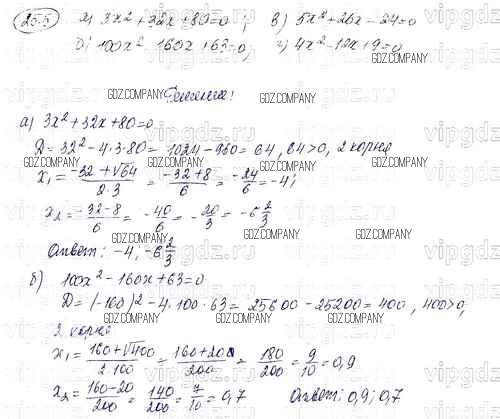 20.5 а) 3x² + 32x + 80 = 0; в) 5x² + 26x - 24 = 0
б) 100x² - 160x + 63 = 0, г) 4x² - 12x + 9 = 0
Решение:
а) 3x² + 32x + 80 = 0
D = 32² - 4·3·80 = 1024 - 960 = 64, 64 > 0, 2 корня
x₁ = (-32 + √64)/(2·3) = (-32 + 8)/6 = -24/6 = -4;
x₂ = (-32 - 8)/6 = -40/6 = -20/3 = -6 2/3
Ответ: -4; -6 2/3
б) 100x² - 160x + 63 = 0
D = (-160)² - 4·100·63 = 25600 - 25200 = 400, 400 > 0,
2 корня
x₁ = (160 + √400)/(2·100) = (160 + 20)/200 = 180/200 = 9/10 = 0,9
x₂ = (160 - 20)/200 = 140/200 = 7/10 = 0,7 Ответ: 0,9; 0,7
GDZ.COMPANY
vipgdz.ru